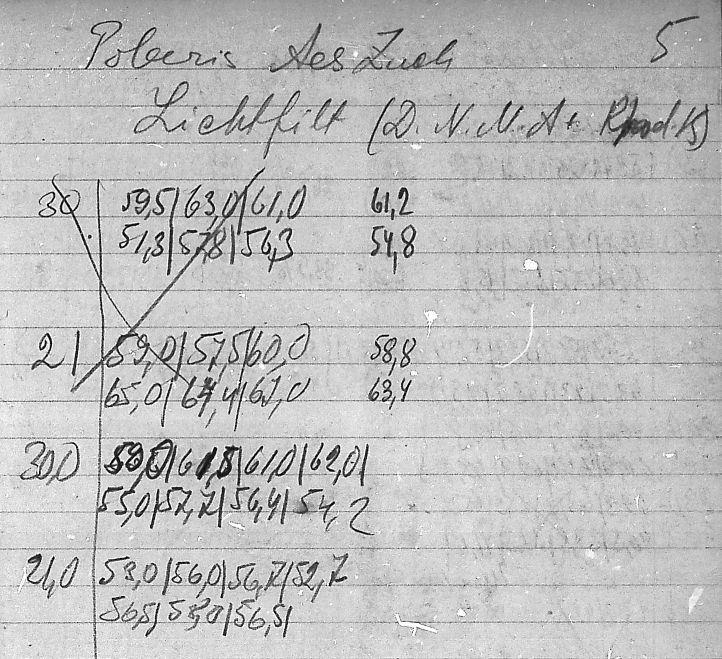 5
Lichtfilt (D. N. N. A+
30 | 59,5 | 63,0 | 61,0 61,2
51,3 | 57,8 | 56,3 54,8
21 | 59,0 | 57,5 | 60,0 58,8
65,0 | 64,4 | 61,0 63,4
30,0 | 59,0 | 61,5 | 61,0 | 62,0 |
55,0 | 57,7 | 56,4 | 54,2
21,0 | 53,0 | 56,0 | 56,7 | 52,7
56,5 | 58,0 | 56,5 |